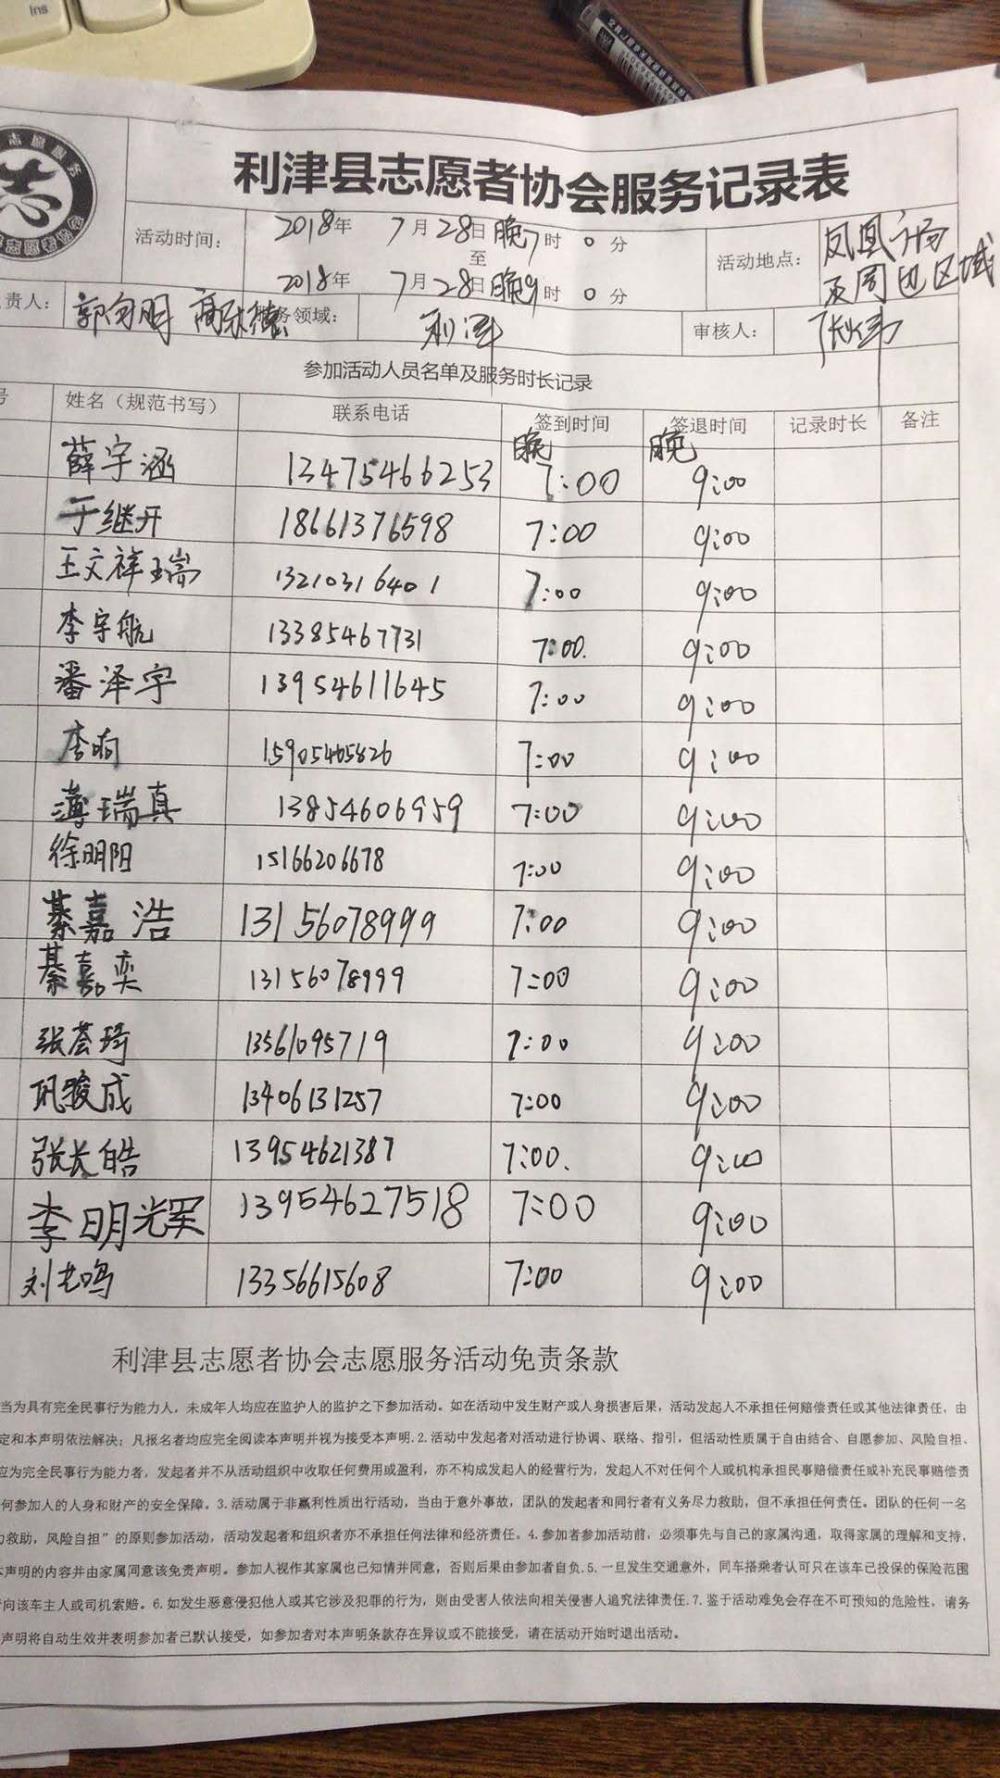 Ins
志愿服务
利津县志愿者协会服务记录表
活动时间： 2018年 7月28日晚7时0分
至
2018年 7月28日晚9时0分
活动地点： 凤凰广场
及周边区域
责人： 郭向明 高 务领域： 利津 审核人： 张炜
参加活动人员名单及服务时长记录
号 姓名（规范书写） 联系电话 签到时间 签退时间 记录时长 备注
晚 晚
薛宇涵 13475466253 7:00 9:00
于继开 18661376598 7:00 9:00
王文祥瑞 13210316401 7:00 9:00
李宇航 13385467731 7:00. 9:00
潘泽宇 13954611645 7:00 9:00
李响 15905465826 7:00 9:00
薄瑞真 13854606959 7:00 9:00
徐明阳 15166206678 7:00 9:00
綦嘉浩 13156078999 7:00 9:00
綦嘉奕 13156078999 7:00 9:00
张荟琦 13561095719 7:00 9:00
巩骏成 13406131257 7:00 9:00
张长皓 13954621387 7:00. 9:00
李明辉 13954627518 7:00 9:00
刘 鸣 13356615608 7:00 9:00
利津县志愿者协会志愿服务活动免责条款
当为具有完全民事行为能力人，未成年人均应在监护人的监护之下参加活动。如在活动中发生财产或人身损害后果，活动发起人不承担任何赔偿责任或其他法律责任，由
定和本声明依法解决；凡报名者均应完全阅读本声明并视为接受本声明.2.活动中发起者对活动进行协调、联络、指引，但活动性质属于自由结合、自愿参加、风险自担、
应为完全民事行为能力者，发起者并不从活动组织中收取任何费用或盈利，亦不构成发起人的经营行为，发起人不对任何个人或机构承担民事赔偿责任或补充民事赔偿责
何参加人的人身和财产的安全保障。3.活动属于非赢利性质出行活动，当由于意外事故，团队的发起者和同行者有义务尽力救助，但不承担任何责任。团队的任何一名
力救助，风险自担”的原则参加活动，活动发起者和组织者亦不承担任何法律和经济责任。4.参加者参加活动前，必须事先与自己的家属沟通，取得家属的理解和支持，
本声明的内容并由家属同意该免责声明。参加人视作其家属也已知情并同意，否则后果由参加者自负.5.一旦发生交通意外，同车搭乘者认可只在该车已投保的保险范围
向该车主人或司机索赔。6.如发生恶意侵犯他人或其它涉及犯罪的行为，则由受害人依法向相关侵害人追究法律责任.7.鉴于活动难免会存在不可预知的危险性，请务
声明将自动生效并表明参加者已默认接受，如参加者对本声明条款存在异议或不能接受，请在活动开始时退出活动。